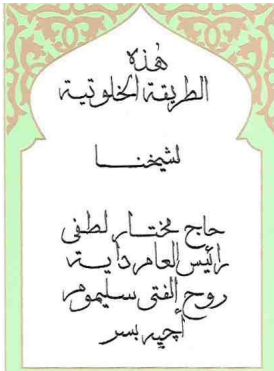 هٰذه
الطريقة الخلوتية
لشيخنا
حاج مختار لطفى
رائيس العام داية
روح الفتى سليموم
أچيه بسر